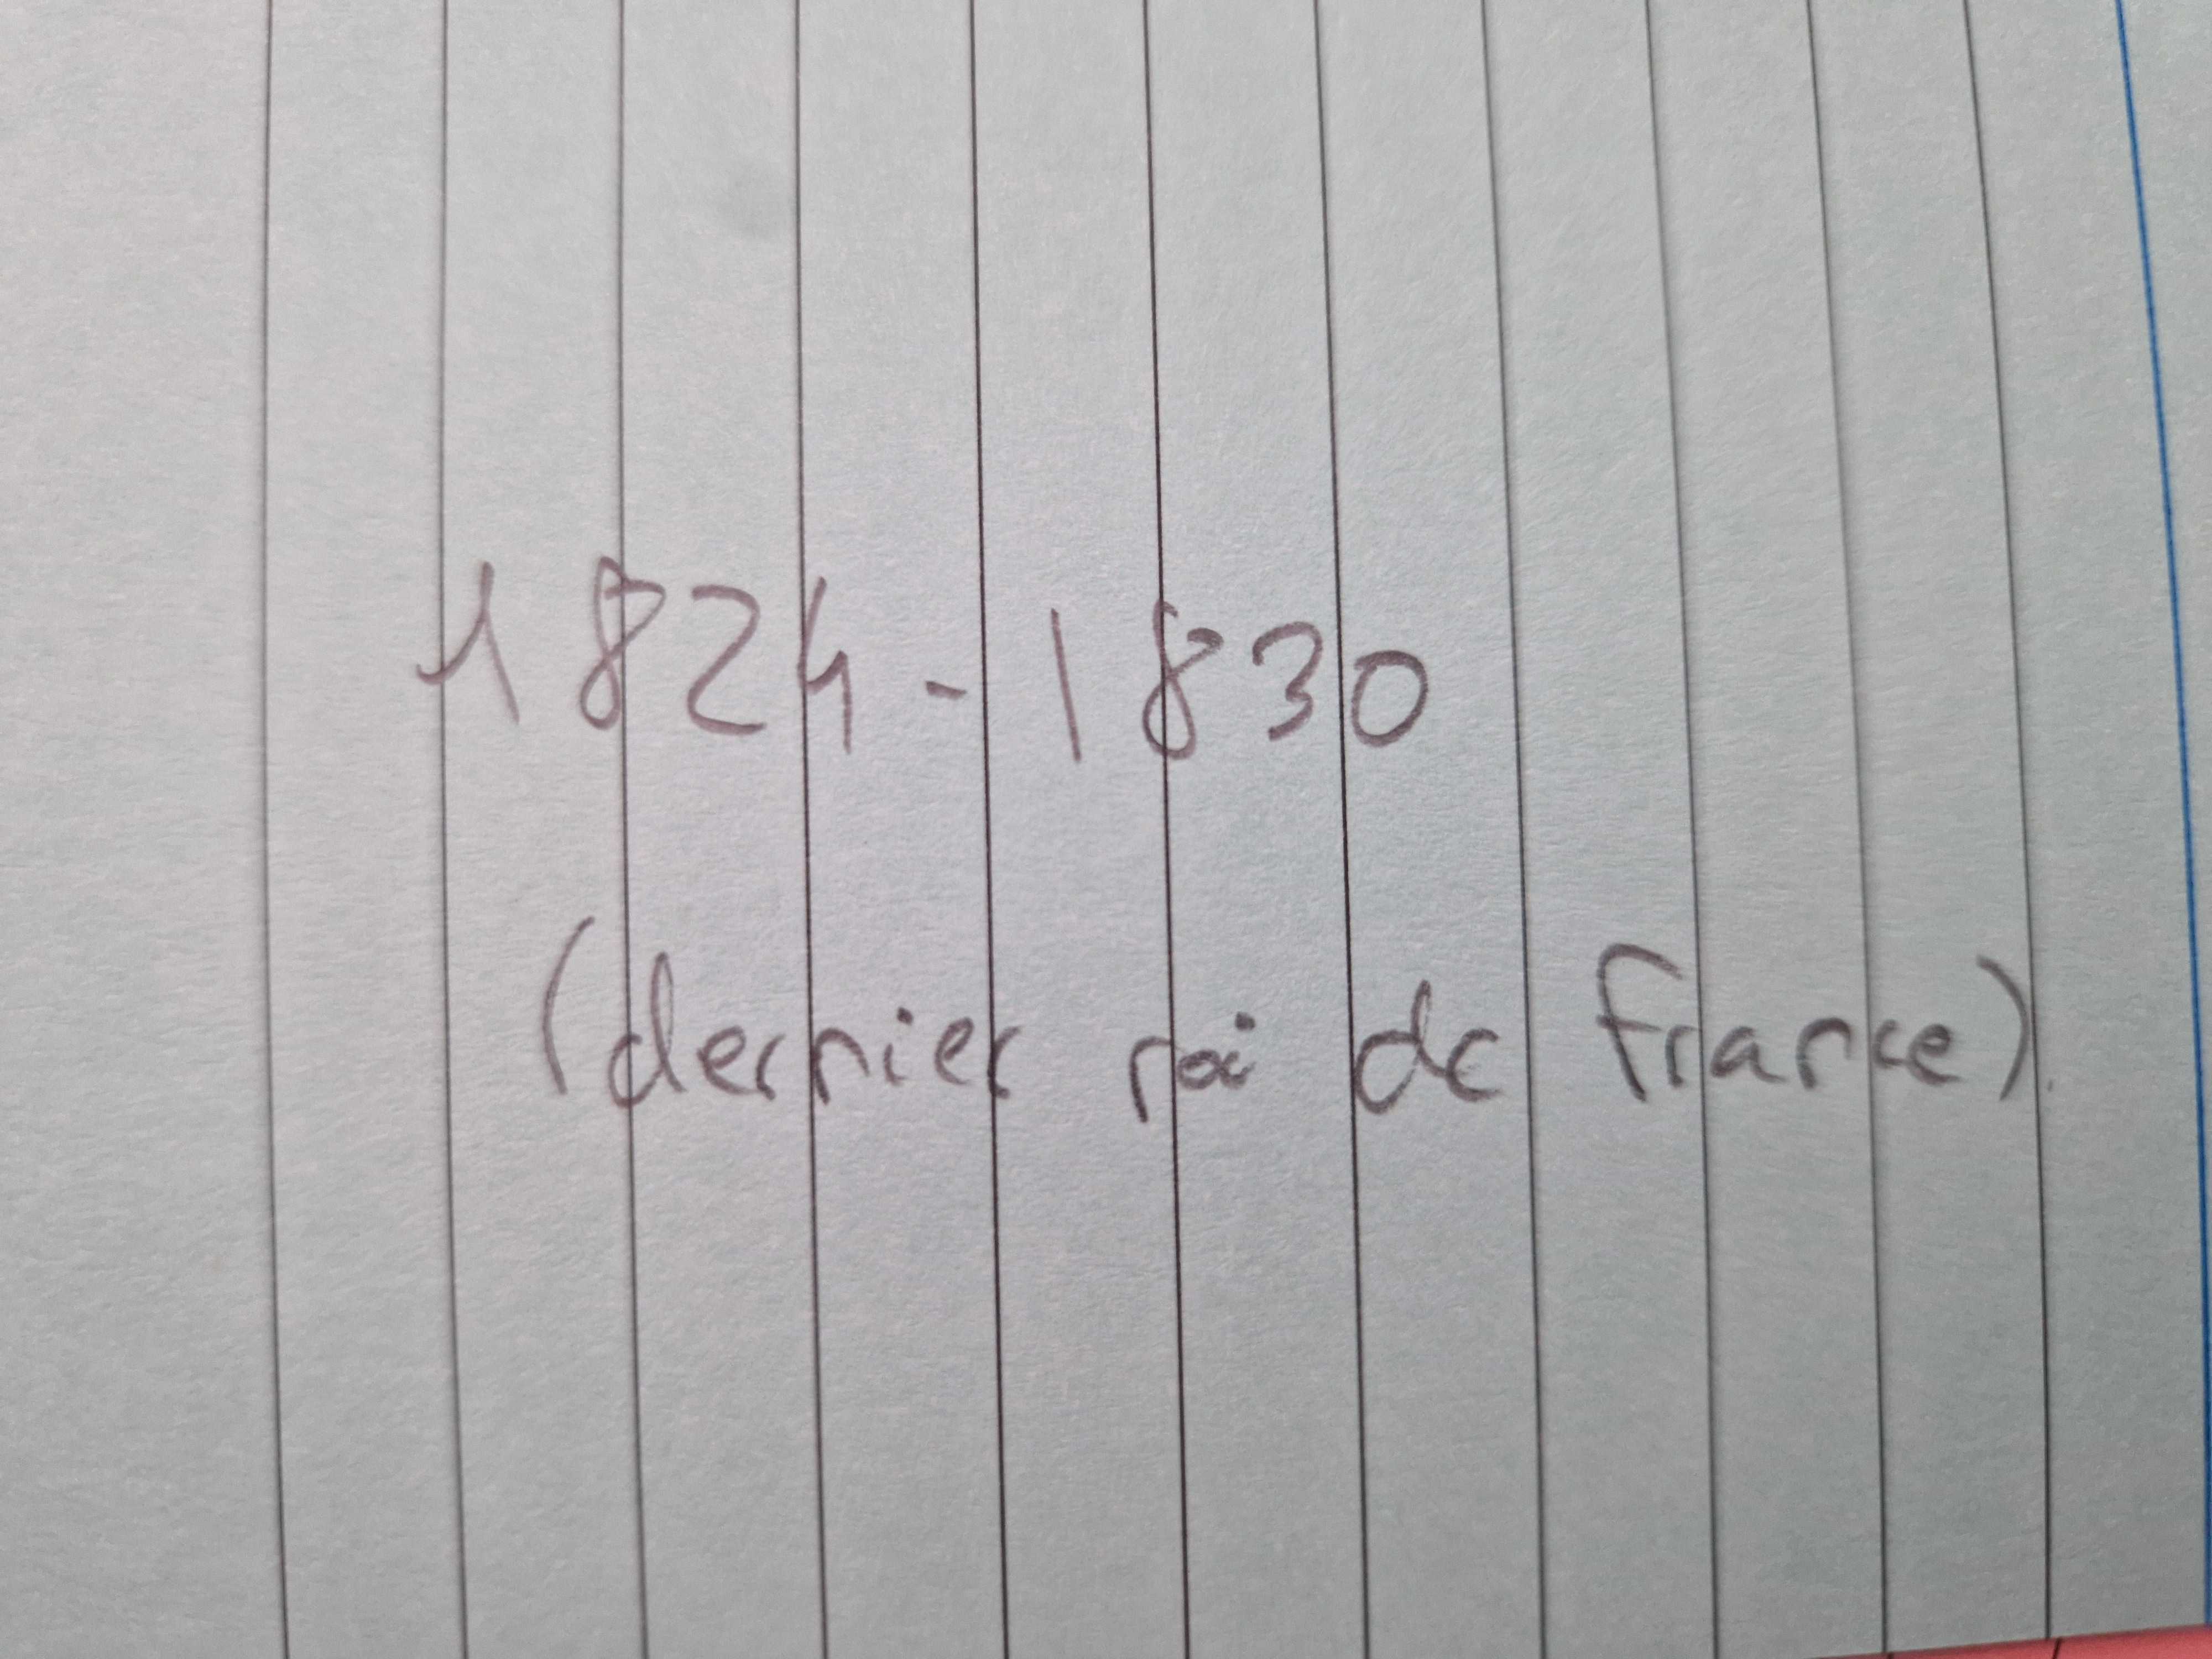 1824-1830
(dernier roi de France).